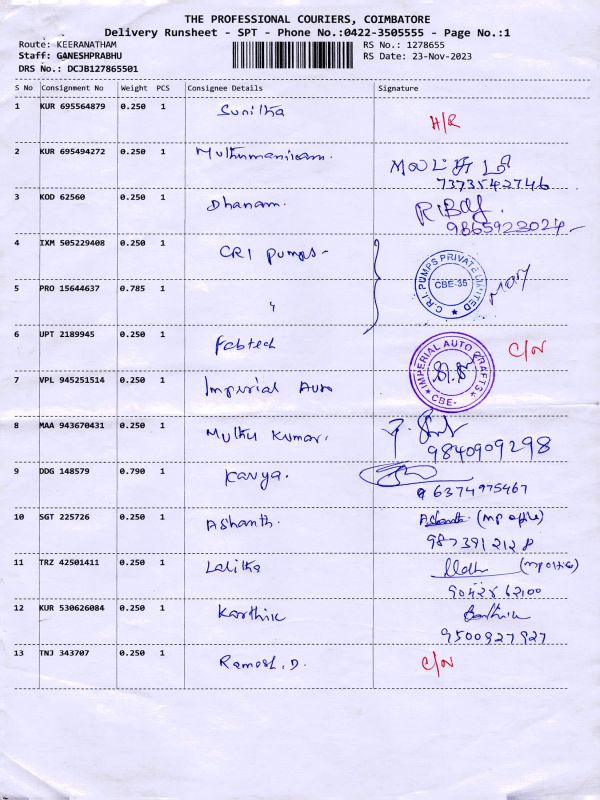 THE PROFESSIONAL COURIERS, COIMBATORE
Delivery Runsheet - SPT - Phone No.:0422-3505555 - Page No.:1
Route: KEERANATHAM RS No.: 1278655
Staff: GANESHPRABHU RS Date: 23-Nov-2023
DRS No.: DCJB127865501
S No Consignment No Weight PCS Consignee Details Signature
1 KUR 695564879 0.250 1 Sunitha H/R
2 KUR 695494272 0.250 1 Muthumanikam.
7373542746
3 KOD 62560 0.250 1 Dhanam.
9865923024
4 IXM 505229408 0.250 1 CRI Pumps-
C.R.I. PUMPS PRIVATE LIMITED
CBE-35
5 PRO 15644637 0.785 1 " Mary
6 UPT 2189945 0.250 1 Fabtech C/N
IMPERIAL AUTO CRAFTS
CBE-
7 VPL 945251514 0.250 1 Imperial Auto
8 MAA 943670431 0.250 1 Muthu Kumar.
9840909298
9 DDG 148579 0.790 1 Kavya.
6374975467
10 SGT 225726 0.250 1 Ashanth. (mp office)
9873912128
11 TRZ 42501411 0.250 1 Lalitha (mp office)
9042862100
12 KUR 530626084 0.250 1 Karthik
9500927927
13 TNJ 343707 0.250 1 Ramesh.D. C/N